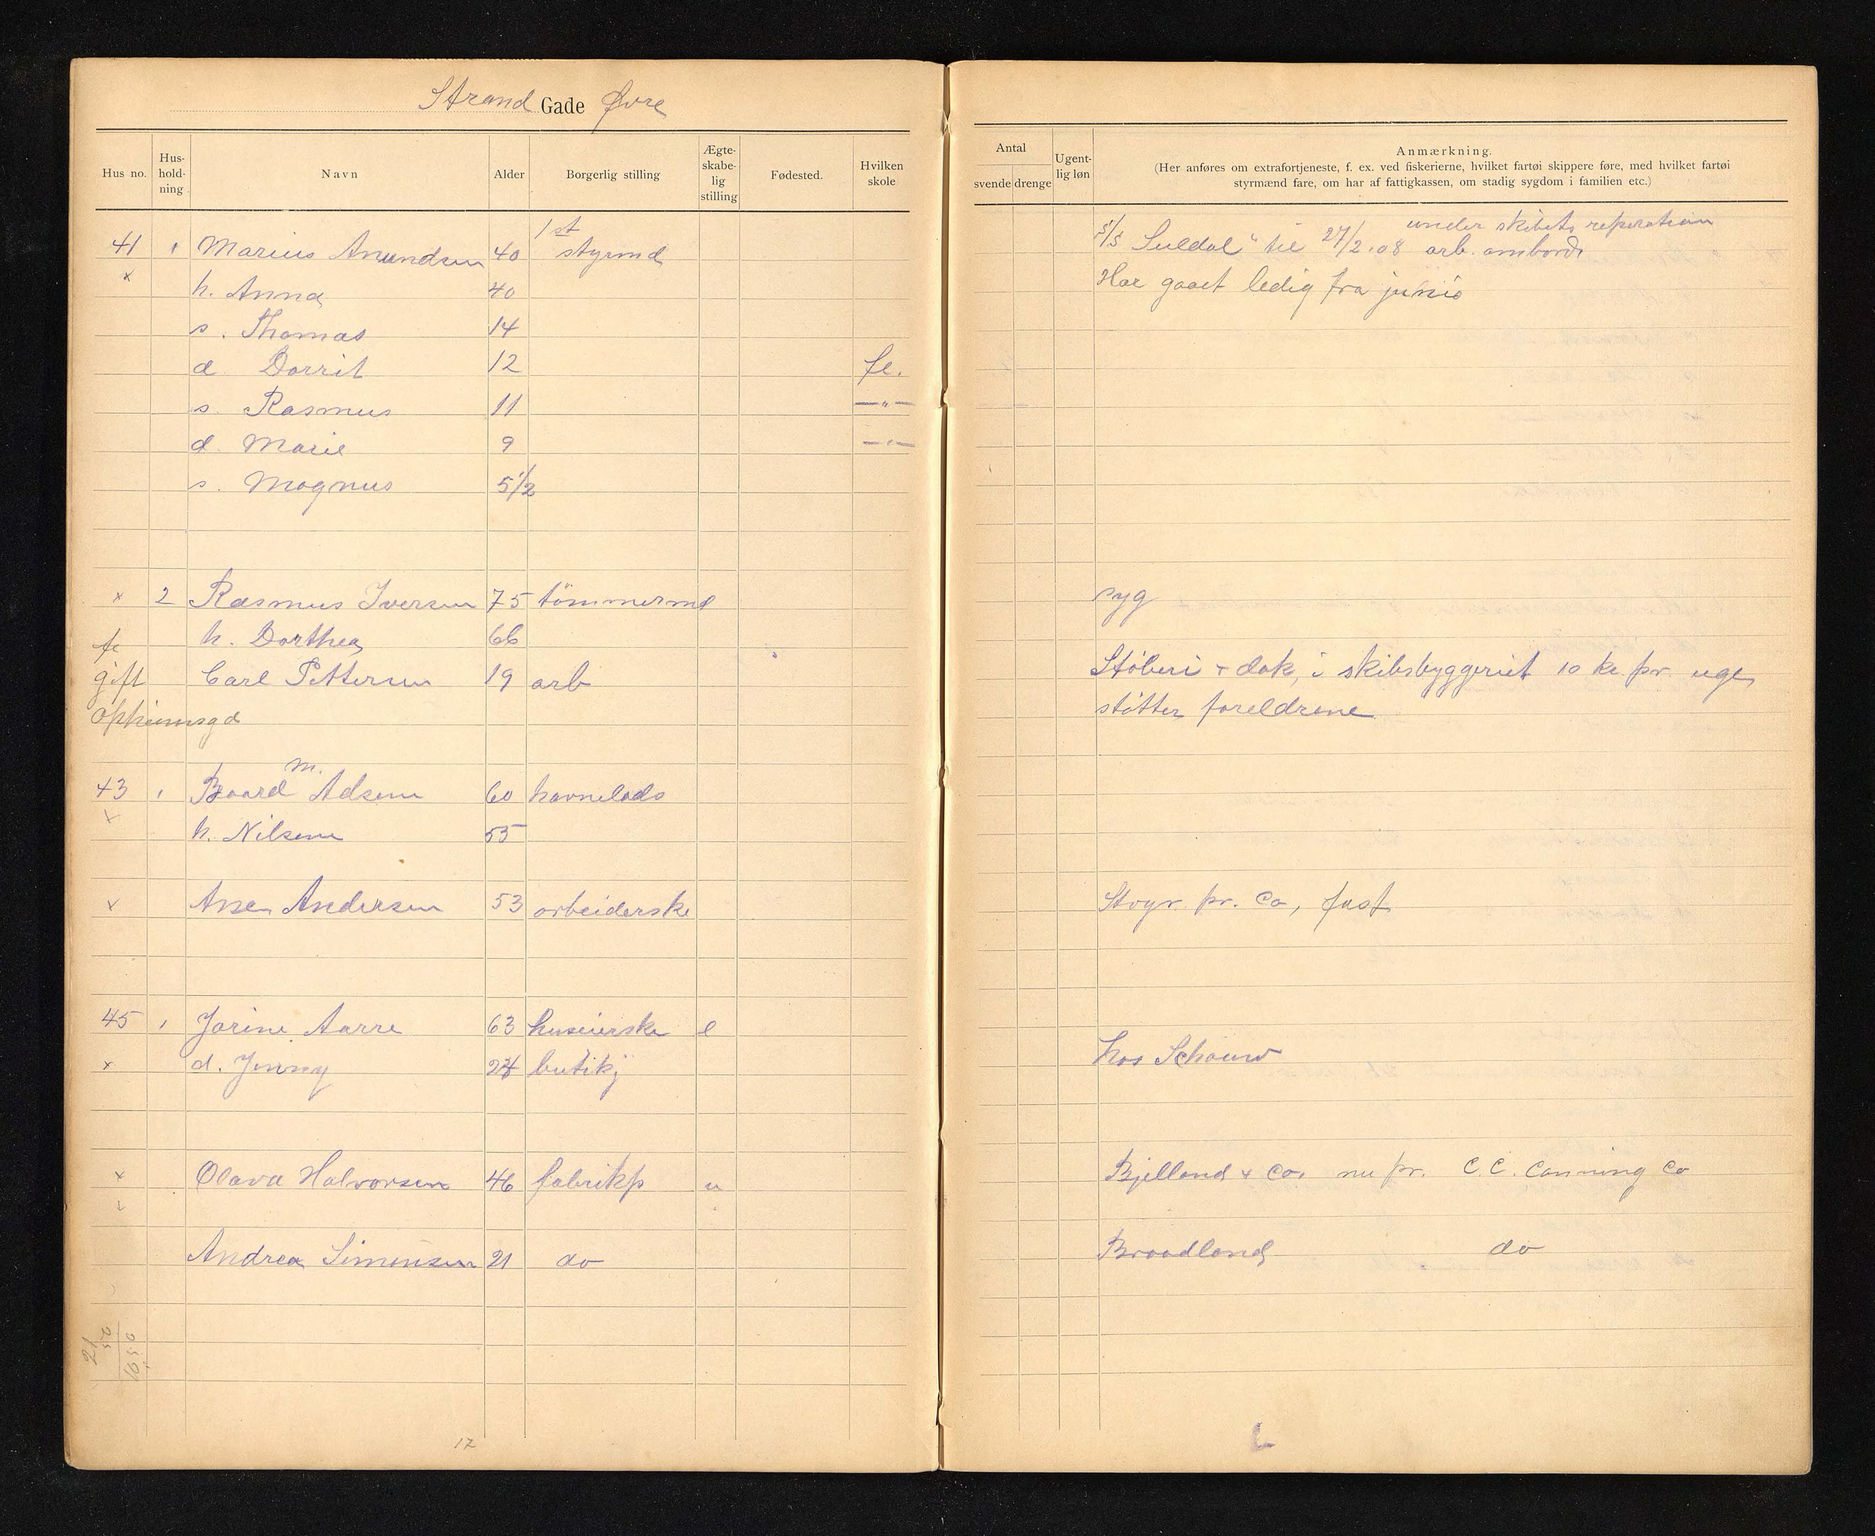 Strand Gade Øvre
Hus no. Hus-hold-ning. Navn Alder Borgerlig stilling Ægte-skabe-lig stilling Fødested. Hvilken skole
Antal svende drenge Ugent-lig løn Anmærkning.
(Her anføres om extrafortjeneste, f. ex. ved fiskerierne, hvilket fartøi skippere føre, med hvilket fartøi
styrmænd fare, om har af fattigkassen, om stadig sygdom i familien etc.)
1st under skibets reperation
41 1 Marius Amundsen 40 styrmd S/S Suldal" til 27/2.08 arb. ombord
x h. Anna 40 Har gaaet ledig fra junio
s. Thomas 14
d Dorrit 12 fe.
s. Rasmus 11 —"—
d. Marie 9 —"—
s. Magnus 5 1/2
x 2 Rasmus Iversen 75 tömmermd syg
fe h. Dorthea 66
gift Carl Pettersen 19 arb Støberi + dok, i skibsbyggeriet 10 kr pr. uge,
støtter foreldrene
M.
43 1 Baard Adsen 60 havnelods
x h. Nilsine 55
x Ane Andersen 53 arbeiderske Stvgr. pr. Co, fast
45 1 Jorine Aarre 63 huseierske e
x d. Jenny 24 butikj hos Schouw
x Olava Halvorsen 46 fabrikp u Bjelland & Co, nu pr. C.C. Canning Co
Andrea Simonsen 21 do Braadland do
17